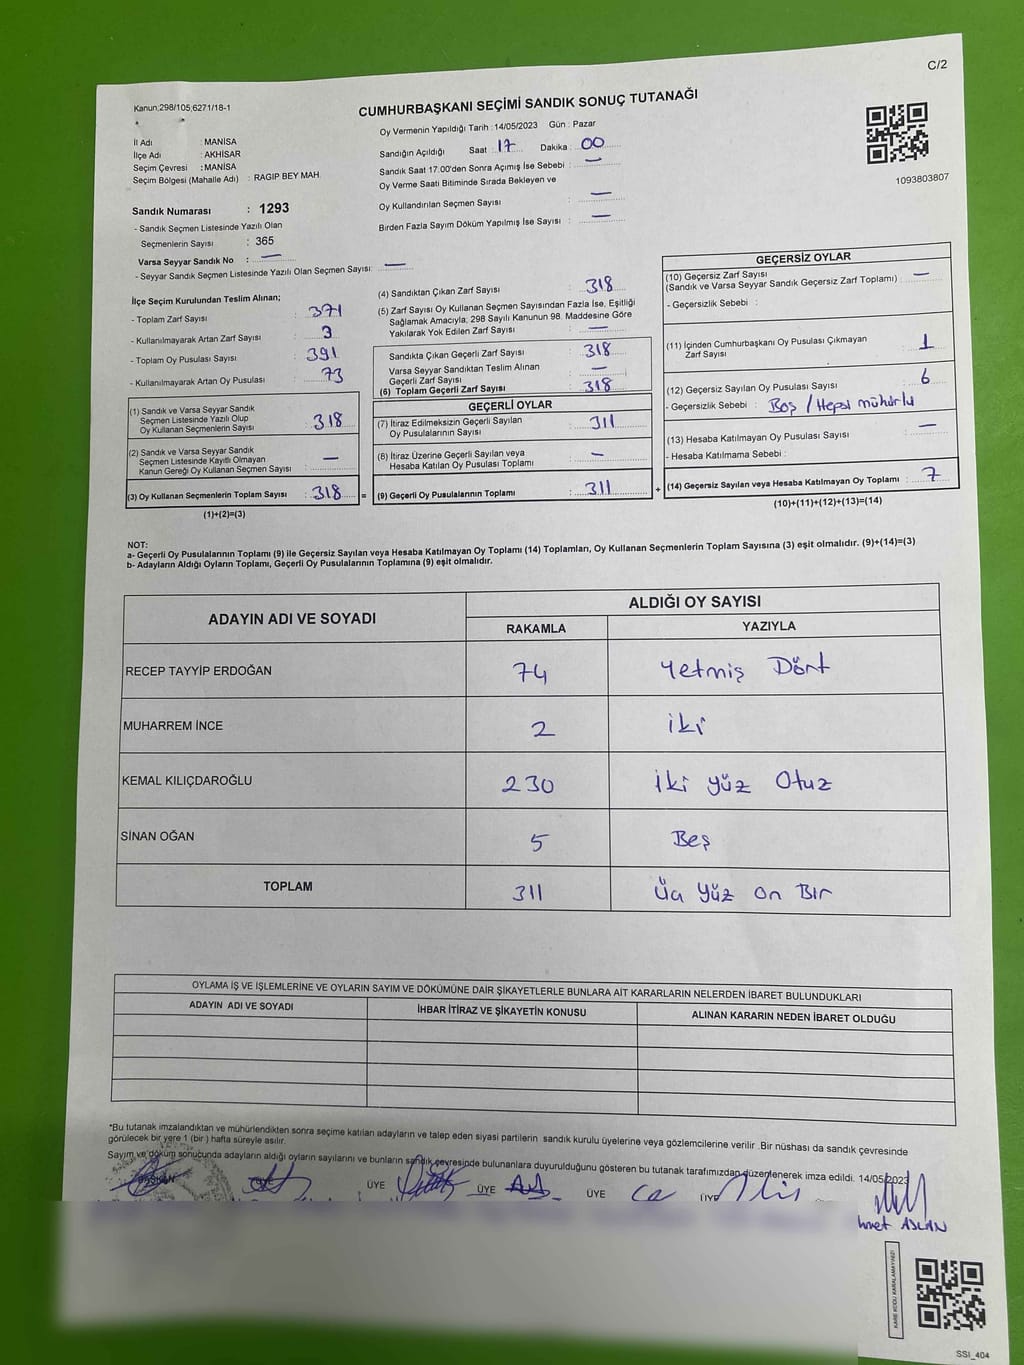 C/2
Kanun;298/105,6271/18-1
CUMHURBAŞKANI SEÇİMİ SANDIK SONUÇ TUTANAĞI
İl Adı : MANİSA
İlçe Adı : AKHİSAR
Seçim Çevresi : MANİSA
Seçim Bölgesi (Mahalle Adı) : RAGIP BEY MAH.
Sandık Numarası : 1293
- Sandık Seçmen Listesinde Yazılı Olan
Seçmenlerin Sayısı : 365
Varsa Seyyar Sandık No : —
- Seyyar Sandık Seçmen Listesinde Yazılı Olan Seçmen Sayısı: —
Oy Vermenin Yapıldığı Tarih :14/05/2023 Gün : Pazar
Sandığın Açıldığı Saat : 17 Dakika : 00
Sandık Saat 17:00'den Sonra Açımış İse Sebebi : —
Oy Verme Saati Bitiminde Sırada Bekleyen ve
Oy Kullandırılan Seçmen Sayısı : —
Birden Fazla Sayım Döküm Yapılmış İse Sayısı : —
1093803807
İlçe Seçim Kurulundan Teslim Alınan;
- Toplam Zarf Sayısı : 371
- Kullanılmayarak Artan Zarf Sayısı : 3
- Toplam Oy Pusulası Sayısı : 391
- Kullanılmayarak Artan Oy Pusulası : 73
(1) Sandık ve Varsa Seyyar Sandık
Seçmen Listesinde Yazılı Olup
Oy Kullanan Seçmenlerin Sayısı : 318
(2) Sandık ve Varsa Seyyar Sandık
Seçmen Listesinde Kayıtlı Olmayan
Kanun Gereği Oy Kullanan Seçmen Sayısı : —
(3) Oy Kullanan Seçmenlerin Toplam Sayısı : 318 =
(1)+(2)=(3)
(4) Sandıktan Çıkan Zarf Sayısı : 318
(5) Zarf Sayısı Oy Kullanan Seçmen Sayısından Fazla İse, Eşitliği
Sağlamak Amacıyla; 298 Sayılı Kanunun 98. Maddesine Göre
Yakılarak Yok Edilen Zarf Sayısı : —
Sandıkta Çıkan Geçerli Zarf Sayısı : 318
Varsa Seyyar Sandıktan Teslim Alınan
Geçerli Zarf Sayısı : —
(6) Toplam Geçerli Zarf Sayısı : 318
GEÇERLİ OYLAR
(7) İtiraz Edilmeksizin Geçerli Sayılan
Oy Pusulalarının Sayısı : 311
(8) İtiraz Üzerine Geçerli Sayılan veya
Hesaba Katılan Oy Pusulası Toplamı : —
(9) Geçerli Oy Pusulalarının Toplamı : 311 +
GEÇERSİZ OYLAR
(10) Geçersiz Zarf Sayısı
(Sandık ve Varsa Seyyar Sandık Geçersiz Zarf Toplamı) : —
- Geçersizlik Sebebi :
(11) İçinden Cumhurbaşkanı Oy Pusulası Çıkmayan
Zarf Sayısı : 1
(12) Geçersiz Sayılan Oy Pusulası Sayısı : 6
- Geçersizlik Sebebi : Boş / Hepsi mühürlü
(13) Hesaba Katılmayan Oy Pusulası Sayısı : —
- Hesaba Katılmama Sebebi :
(14) Geçersiz Sayılan veya Hesaba Katılmayan Oy Toplamı : 7
(10)+(11)+(12)+(13)=(14)
NOT:
a- Geçerli Oy Pusulalarının Toplamı (9) ile Geçersiz Sayılan veya Hesaba Katılmayan Oy Toplamı (14) Toplamları, Oy Kullanan Seçmenlerin Toplam Sayısına (3) eşit olmalıdır. (9)+(14)=(3)
b- Adayların Aldığı Oyların Toplamı, Geçerli Oy Pusulalarının Toplamına (9) eşit olmalıdır.
ADAYIN ADI VE SOYADI ALDIĞI OY SAYISI
RAKAMLA YAZIYLA
RECEP TAYYİP ERDOĞAN 74 Yetmiş Dört
MUHARREM İNCE 2 iki
KEMAL KILIÇDAROĞLU 230 İki yüz Otuz
SİNAN OĞAN 5 Beş
TOPLAM 311 Üç Yüz On Bir
OYLAMA İŞ VE İŞLEMLERİNE VE OYLARIN SAYIM VE DÖKÜMÜNE DAİR ŞİKAYETLERLE BUNLARA AİT KARARLARIN NELERDEN İBARET BULUNDUKLARI
ADAYIN ADI VE SOYADI İHBAR İTİRAZ VE ŞİKAYETİN KONUSU ALINAN KARARIN NEDEN İBARET OLDUĞU
*Bu tutanak imzalandıktan ve mühürlendikten sonra seçime katılan adayların ve talep eden siyasi partilerin sandık kurulu üyelerine veya gözlemcilerine verilir .Bir nüshası da sandık çevresinde
görülecek bir yere 1 (bir ) hafta süreyle asılır.
Sayım ve döküm sonucunda adayların aldığı oyların sayılarını ve bunların sandık çevresinde bulunanlara duyurulduğunu gösteren bu tutanak tarafımızdan düzenlenerek imza edildi. 14/05/2023
BAŞKAN ÜYE ÜYE ÜYE ÜYE
ASLAN
KARE KODU KARALAMAYINIZ!
SSI_404